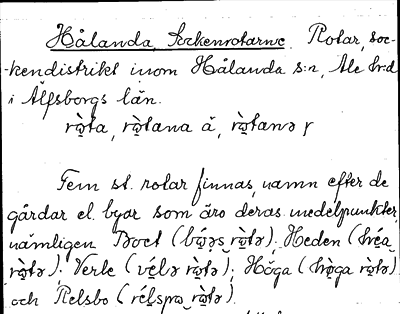 Hålanda, Sockenrotarne. Rotar, soc-
-kendistrikt inom Hålanda s:n, Ale hr:d
i Älfsborgs län.
rὼta, rὼtana ä, rὼtanə r
Fem st. rotar finnas, namn efter de
gårdar el. byar som äro deras medelpunkter,
nämligen Boet (bώəs rὼtə); Heden (héa
rὼtə); Verle (vélə rὼtə); Höga (hö̀ga rὼtə)
och Relsbo (rélspω rὼtə).